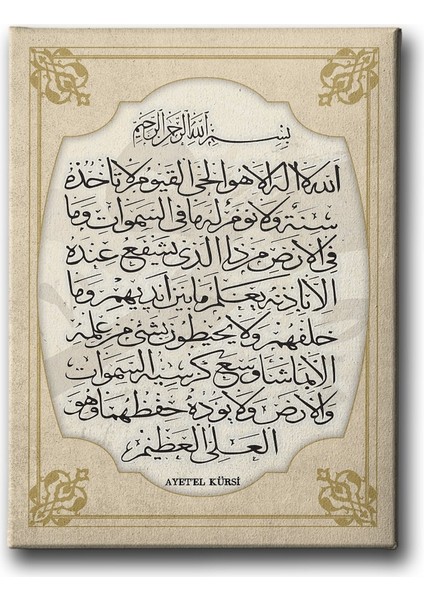 بسم الله الرحمن الرحيم
الله لا اله الا هو الحى القيوم لا تأخذه
سنة ولا نوم له ما فى السموات وما
فى الارض من ذا الذى يشفع عنده
الا باذنه يعلم ما بين ايديهم وما
خلفهم ولا يحيطون بشئ من علمه
الا بما شاء وسع كرسيه السموات
والارض ولا يوده حفظهما وهو
العلى العظيم
AYET'EL KÜRSİ